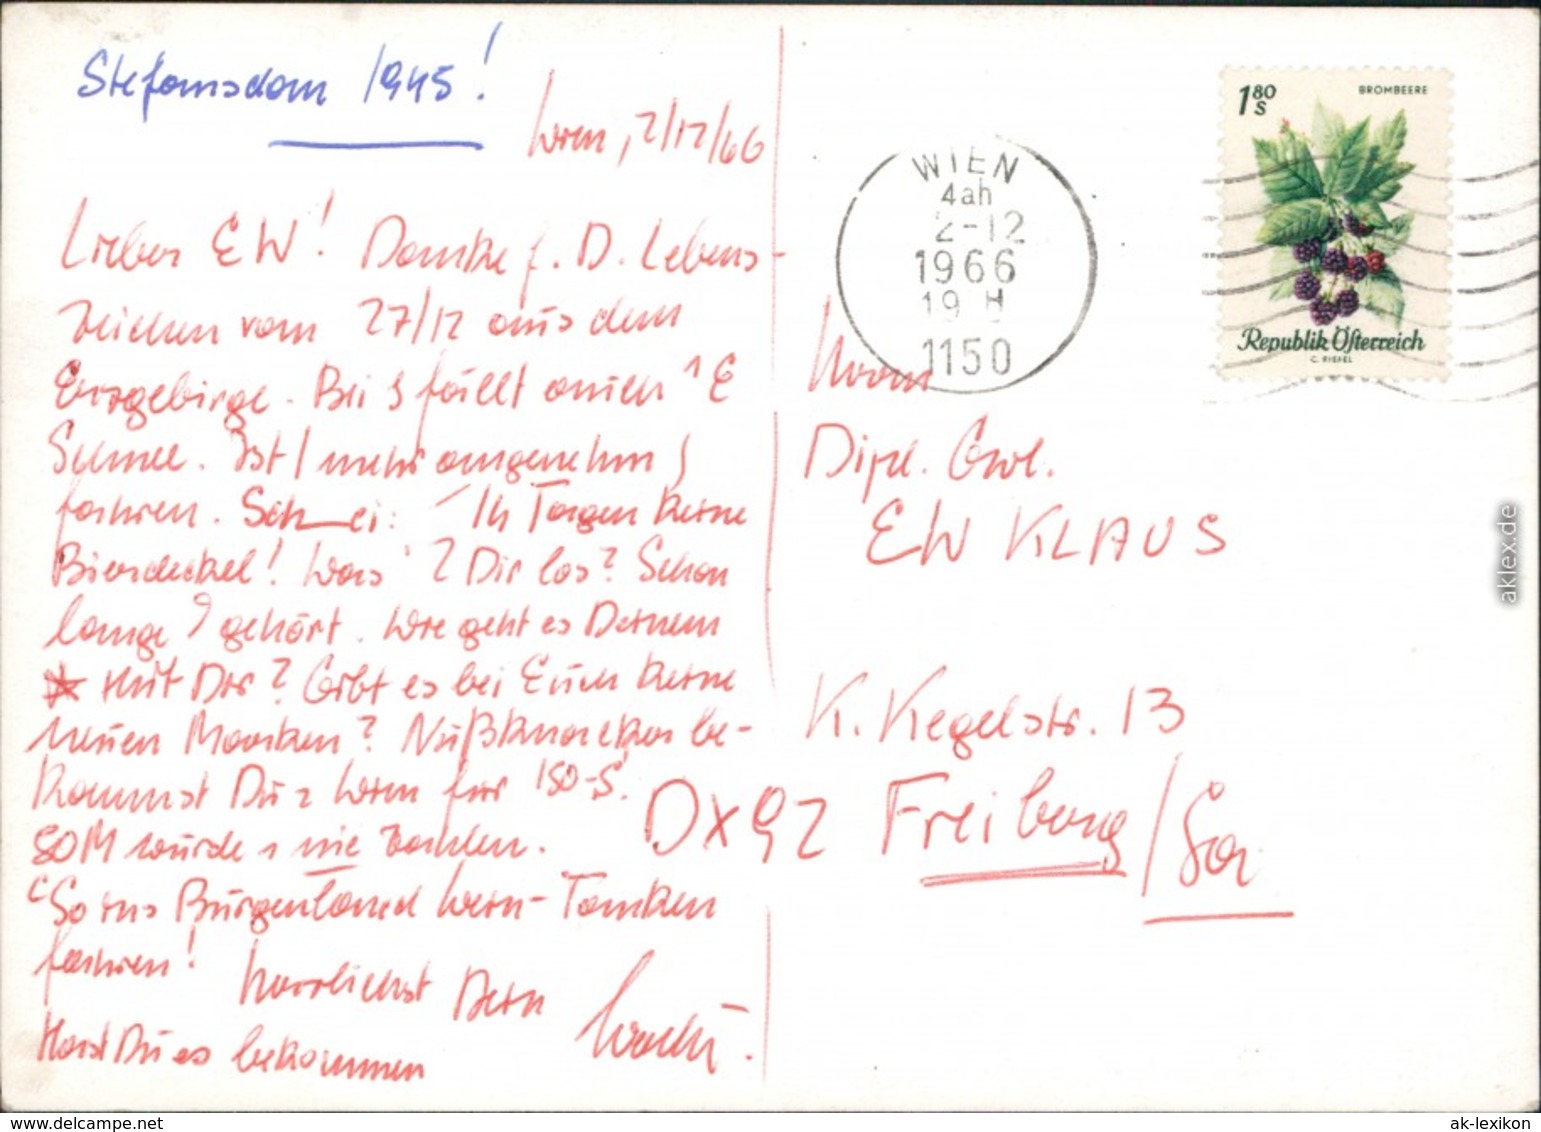 Stefansdom 1945!
Wien, 2/12/66
Lieber EW! Danke f. D. Lebens-
zeichen vom 27/12 aus dem
Erzgebirge. Bei fällt auch
Schnee. Ist mehr angenehm
fahren. In Tagen keine
Bierdeckel! Was ? Dir los? Schon
lange gehört. Wie geht es Deinem
mit Dir? Gibt es bei Euch keine
neuen Marken? Nußknacker be-
kommst Du Wien für
80M würde nie zahlen.
ins Burgenland Wein-Tanken
fahren!
herzlichst Dein
Hast Du es bekommen
WIEN
4ah
2-12
1966
19 H
1150
1 80 S
BROMBEERE
Republik Österreich
Herrn
Dipl. Gwl.
EW KLAUS
K. Kegelstr. 13
DX92 Freiberg/Sa
aklex.de
www.delcampe.net
ak-lexikon